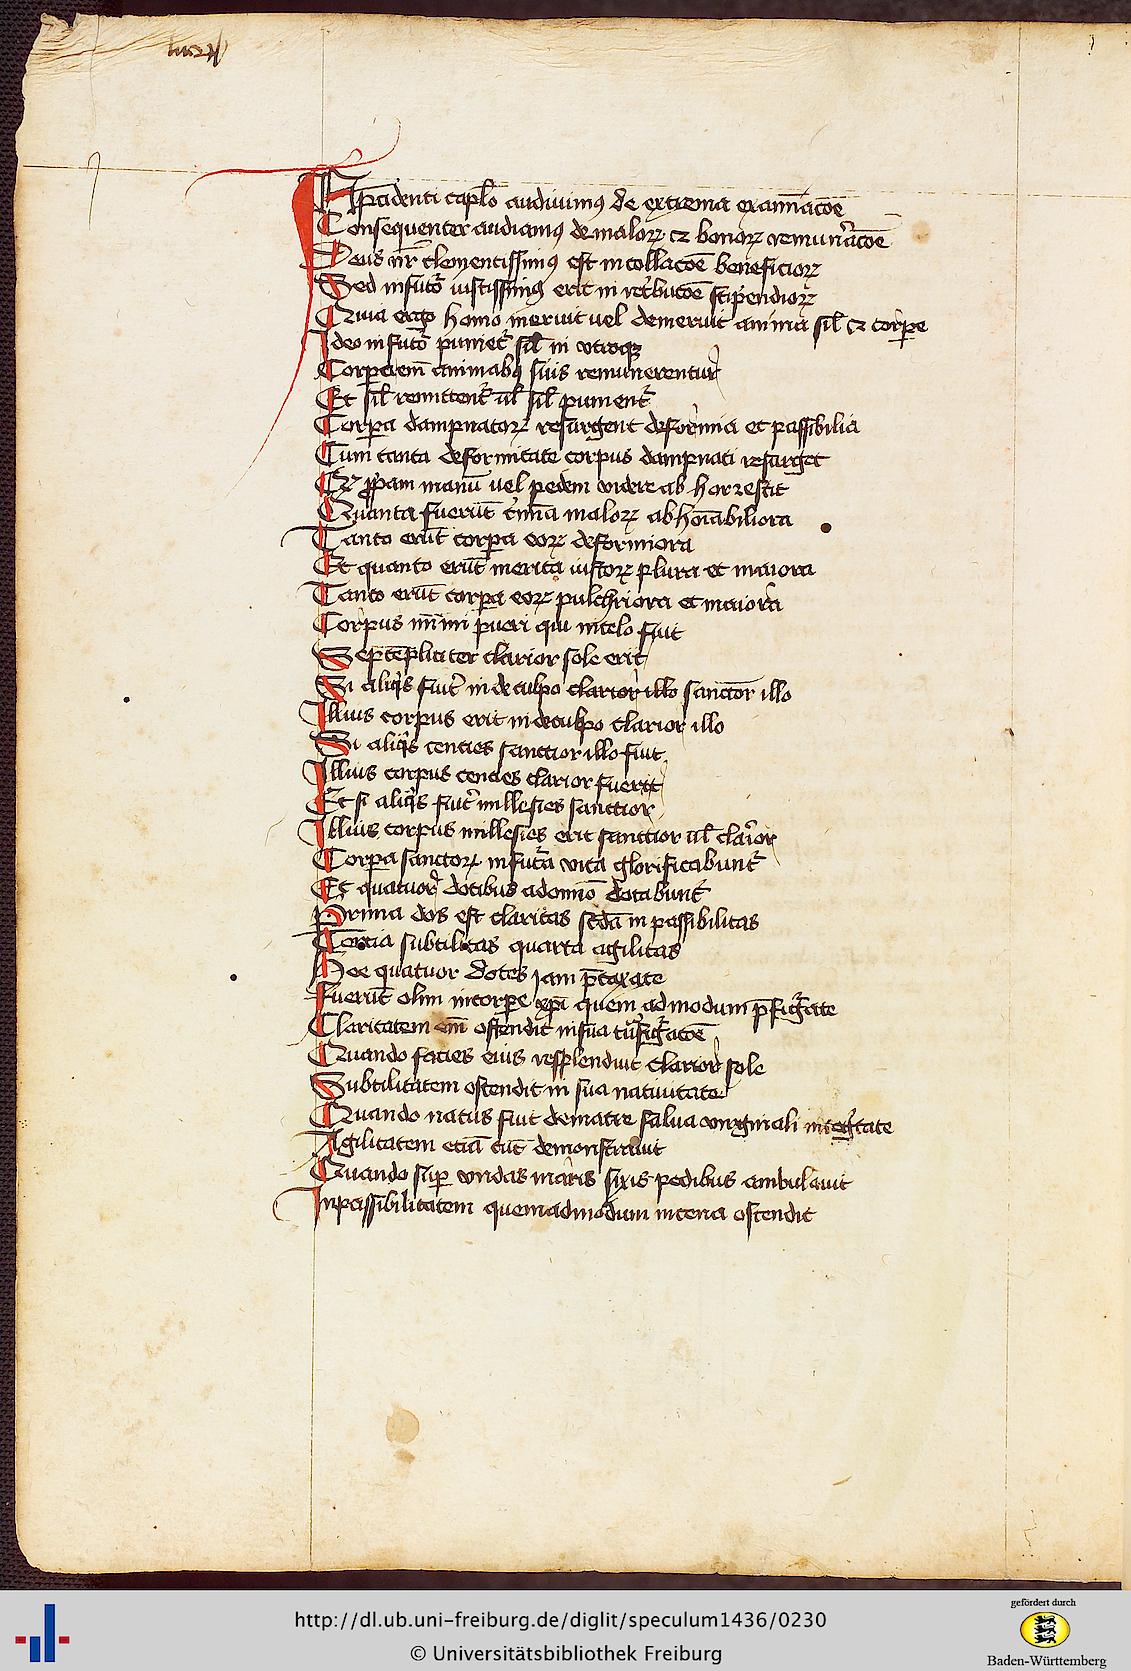 In p̄cedenti capl̄o audiuimꝰ de extrema exami̅ac̄oe
Consequenter audiamꝰ de maloꝝ ꝛ bonoꝝ remun̄ac̄oe
Deus nr̄ clementissimꝰ est in collac̄oe beneficioꝝ
Sed in futo᷑ iustissimꝰ erit in ret̾buc̄oe stipendioꝝ
Quia ergo homo meruit uel demeruit anima sil̄ ꝛ corꝑe
Ideo in futo᷑ puniet᷑ sil̄ in vtroqꝫ
Corꝑa em̄ animabꝰ suis remunerentur
Et sil̄ remittent᷑ ul̄ sil̄ punient᷑
Corꝑa dampnatoꝝ resurgent deformia et passibilia
Cum tanta deformitate corpus dampnati resurget
Qꝫ ꝓpam manū uel pedem videre ab horrescit
Quanta fuerūt c̾mīa maloꝝ abhoīabiliora
Tanto erūt corꝑa eoꝝ deformiora
Et quanto erūt merita iustoꝝ plura et maiora
Tanto erūt corꝑa eoꝝ pulchriora et maiora
Corpus mīmi pueri qui in celo fuit
Septēpliciter clarior sole erit
Si aliq̾s fuit᷑ in decuplo clarior illo sanctior illo
Illius corpus erit in decuplo clarior illo
Si aliq̾s centies sanctior illo fuit
Illius corpus centies clarior fuerit
Et si aliq̾s fuit᷑ millesies sanctior
Illius corpus millesies erit sanctior ul̄ clarior
Corꝑa sanctoꝝ in fut᷑a vita glorificabunt᷑
Et quatuor dotibus a domīo dotabunt᷑
Prima dos est claritas sc̄da in passibilitas
Tercia subtilitas quarta agilitas
Hee quatuor dotes jam p̄taxate
Fuerūt olim in corꝑe xp̄i quem ad modum p̄fig᷑ate
Claritatem em̄ ostendit in sua tn̄sfig᷑ac̄oe
Quando facies eius resplenduit clarior sole
Subtilitatem ostendit in sua natiuitate
Quando natus fuit de matre salua virginali integ᷑tate
Agilitatem etiā tūc demonstrauit
Quando suꝑ vndas maris sixis pedibus ambulauit
Inpassibilitatem quemadmodum in cena ostendit
http://dl.ub.uni-freiburg.de/diglit/speculum1436/0230
© Universitätsbibliothek Freiburg
gefördert durch
Baden-Württemberg